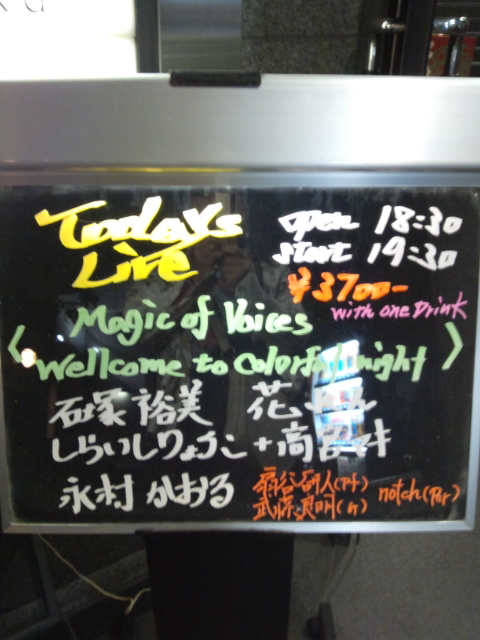 Todays Live
open 18:30
start 19:30
¥3700-
with one Drink
Magic of Voices
<Wellcome to Colorful night>
石塚裕美 花
しらいしりょうこ+高宮マキ
永村かおる
notch(Per)